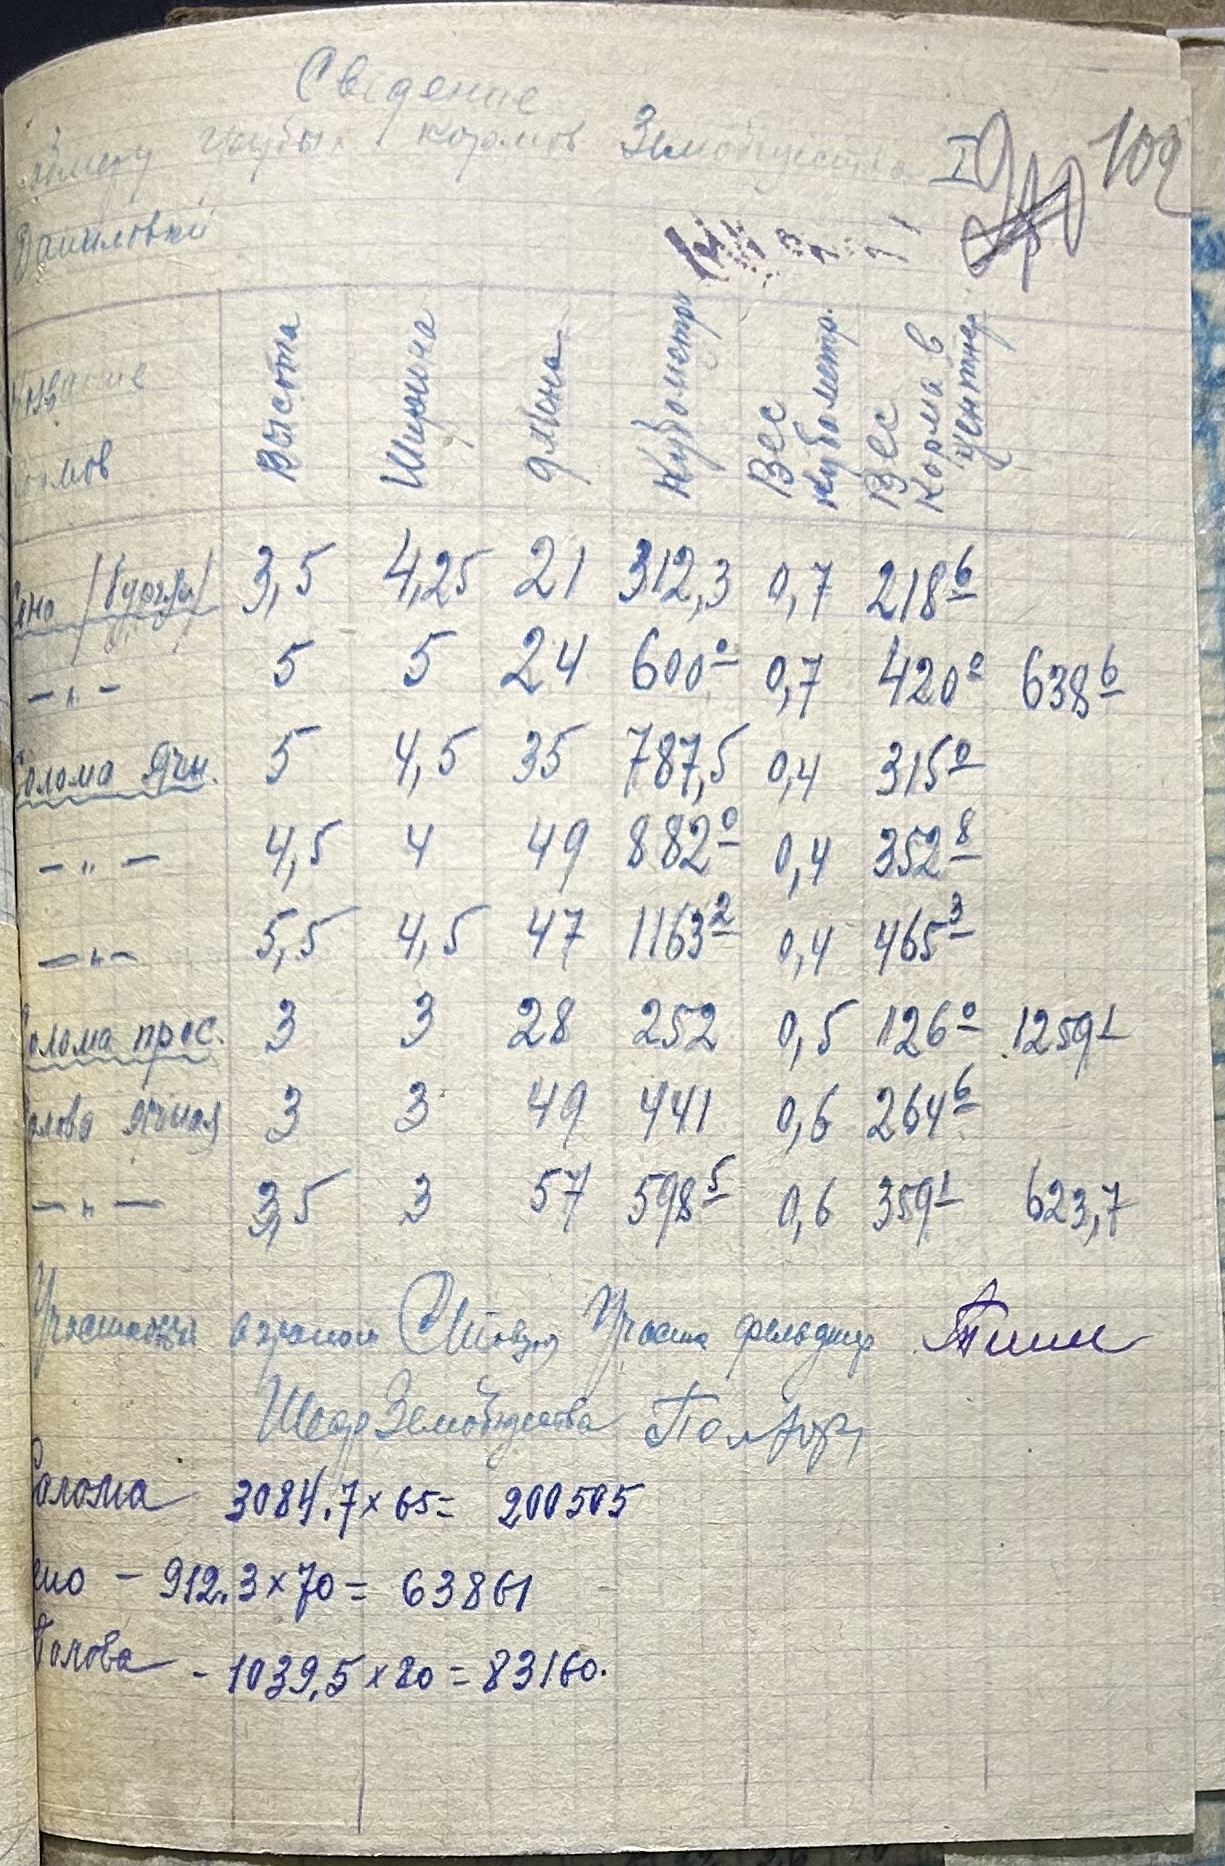 Сведение
обмеру грубых кормов Земобщества I 102
Даниловки
Название кормов Высота Ширина длина Кубометр Вес кубометр. Вес корма в центнер.
Сено 3,5 4,25 21 312,3 0,7 218 6
— " — 5 5 24 600 0 0,7 420 0 638 6
Солома Ячн. 5 4,5 35 787,5 0,4 315 0
— " — 4,5 4 49 882 0 0,4 352 8
— " — 5,5 4,5 47 1163 2 0,4 465 3
Солома прос. 3 3 28 252 0,5 126 0 1259 1
Полова ячная 3 3 49 441 0,6 264 6
— " — 3,5 3 57 598 5 0,6 359 1 623,7
Участковый агроном Участк фельдшер
Земобщества
Солома 3084.7 × 65 = 200505
Сено — 912.3 × 70 = 63861
Полова - 1039,5 × 80 = 83160.